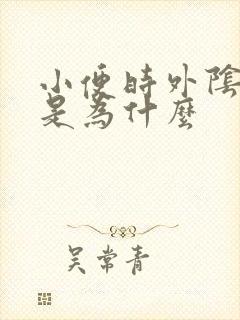 小便時外陰
是為什麼
吴常青